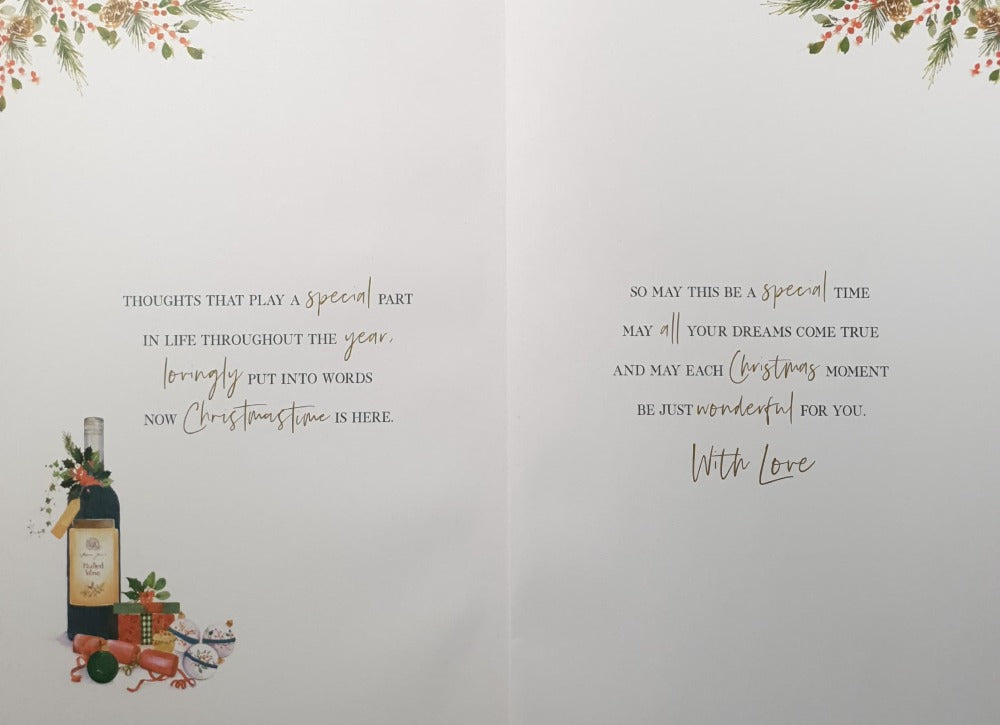 THOUGHTS THAT PLAY A special PART
IN LIFE THROUGHOUT THE year,
lovingly PUT INTO WORDS
NOW Christmastime IS HERE.
Mulled
Wine
SO MAY THIS BE A special TIME
MAY all YOUR DREAMS COME TRUE
AND MAY EACH Christmas MOMENT
BE JUST wonderful FOR YOU.
With Love